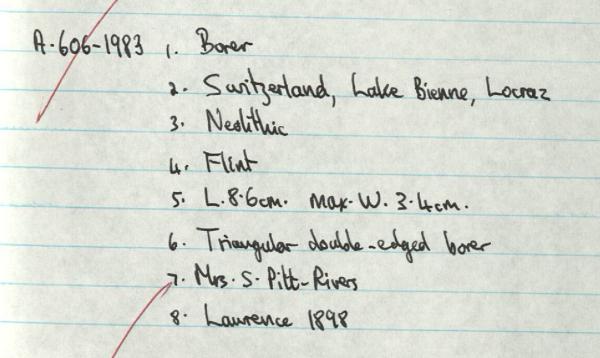 A.606-1983 1. Borer
2. Switzerland, Lake Bienne, Locraz
3. Neolithic
4. Flint
5. L.8.6cm. max. W. 3.4cm.
6. Triangular double-edged borer
7. Mrs. S. Pitt-Rivers
8. Laurence 1898